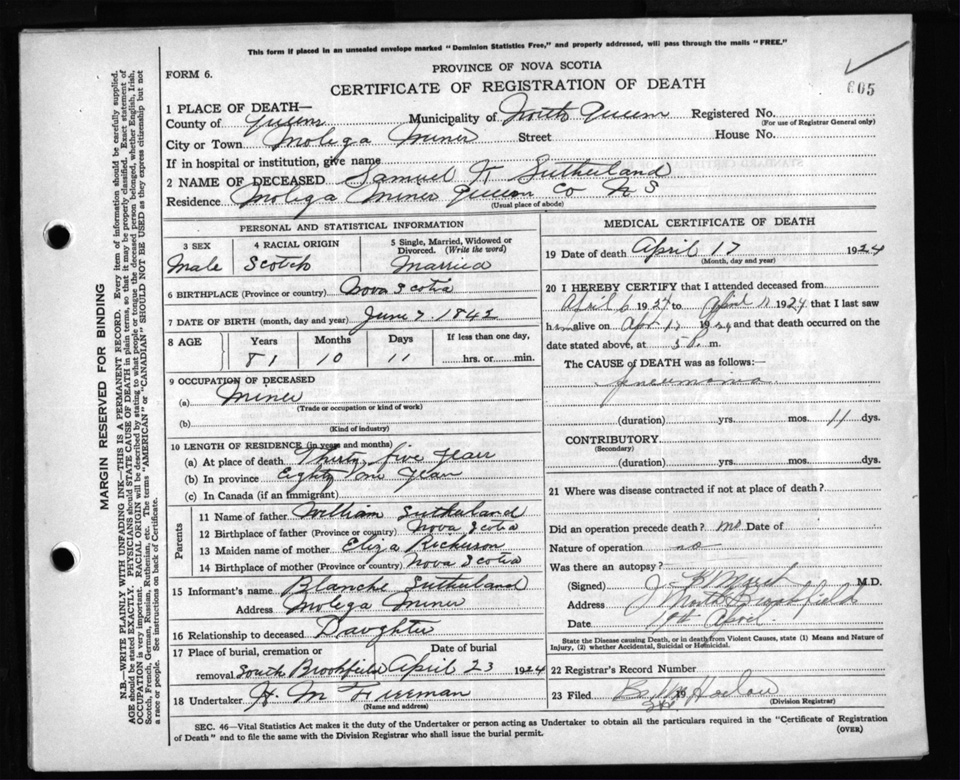 This form if placed in an unsealed envelope marked "Dominion Statistics Free," and properly addressed, will pass through the mails "FREE."
605
FORM 6.
PROVINCE OF NOVA SCOTIA
CERTIFICATE OF REGISTRATION OF DEATH
1 PLACE OF DEATH—
County of Queens Municipality of North Queens Registered No.
(For use of Registrar General only)
City or Town Molega Mines Street House No.
If in hospital or institution, give name
2 NAME OF DECEASED Samuel Sutherland
Residence Molega Mines Queens Co N S
(Usual place of abode)
PERSONAL AND STATISTICAL INFORMATION
3 SEX
Male
4 RACIAL ORIGIN
Scotch
5 Single, Married, Widowed or
Divorced. (Write the word)
Married
6 BIRTHPLACE (Province or country) Nova Scotia
7 DATE OF BIRTH (month, day and year) June 7 1842
8 AGE Years Months Days If less than one day,
81 10 11 hrs. or min.
9 OCCUPATION OF DECEASED
(a) Miner
(Trade or occupation or kind of work)
(b)
(Kind of industry)
10 LENGTH OF RESIDENCE (in years and months)
(a) At place of death Thirty five years
(b) In province Eighty one years
(c) In Canada (if an immigrant)
Parents
11 Name of father William Sutherland
12 Birthplace of father (Province or country) Nova Scotia
13 Maiden name of mother Eliza
14 Birthplace of mother (Province or country) Nova Scotia
15 Informant's name Blanche Sutherland
Address Molega Mines
16 Relationship to deceased Daughter
17 Place of burial, cremation or removal Date of burial
South Brookfield April 23 1924
18 Undertaker H. M Freeman
(Name and address)
MEDICAL CERTIFICATE OF DEATH
19 Date of death April 17 1924
(Month, day and year)
20 I HEREBY CERTIFY that I attended deceased from
April 6 1924 to April 1924 that I last saw
him alive on Apl 1924 and that death occurred on the
date stated above, at 5 m.
The CAUSE of DEATH was as follows:—
pneumonia
(duration) yrs. mos. 11 dys.
CONTRIBUTORY
(Secondary)
(duration) yrs. mos. dys.
21 Where was disease contracted if not at place of death?
Did an operation precede death? no Date of
Nature of operation no
Was there an autopsy?
(Signed) M.D.
Address North Brookfield
Date April
State the Disease causing Death, or in death from Violent Causes, state (1) Means and Nature of
Injury, (2) whether Accidental, Suicidal or Homicidal.
22 Registrar's Record Number
23 Filed 19
(Division Registrar)
SEC. 46—Vital Statistics Act makes it the duty of the Undertaker or person acting as Undertaker to obtain all the particulars required in the "Certificate of Registration
of Death" and to file the same with the Division Registrar who shall issue the burial permit.
(OVER)
MARGIN RESERVED FOR BINDING
N.B.—WRITE PLAINLY WITH UNFADING INK—THIS IS A PERMANENT RECORD. Every item of information should be carefully supplied.
AGE should be stated EXACTLY. PHYSICIANS should STATE CAUSE OF DEATH in plain terms, so that it may be properly classified. Exact statement of
OCCUPATION is very important. RACIAL ORIGIN will be described by stating to what people or tongue the deceased person belonged, whether English, Irish,
Scotch, French, German, Russian, Ruthenian, etc. The terms "AMERICAN" or "CANADIAN" SHOULD NOT BE USED as they express citizenship but not
a race or people. See instructions on back of Certificate.